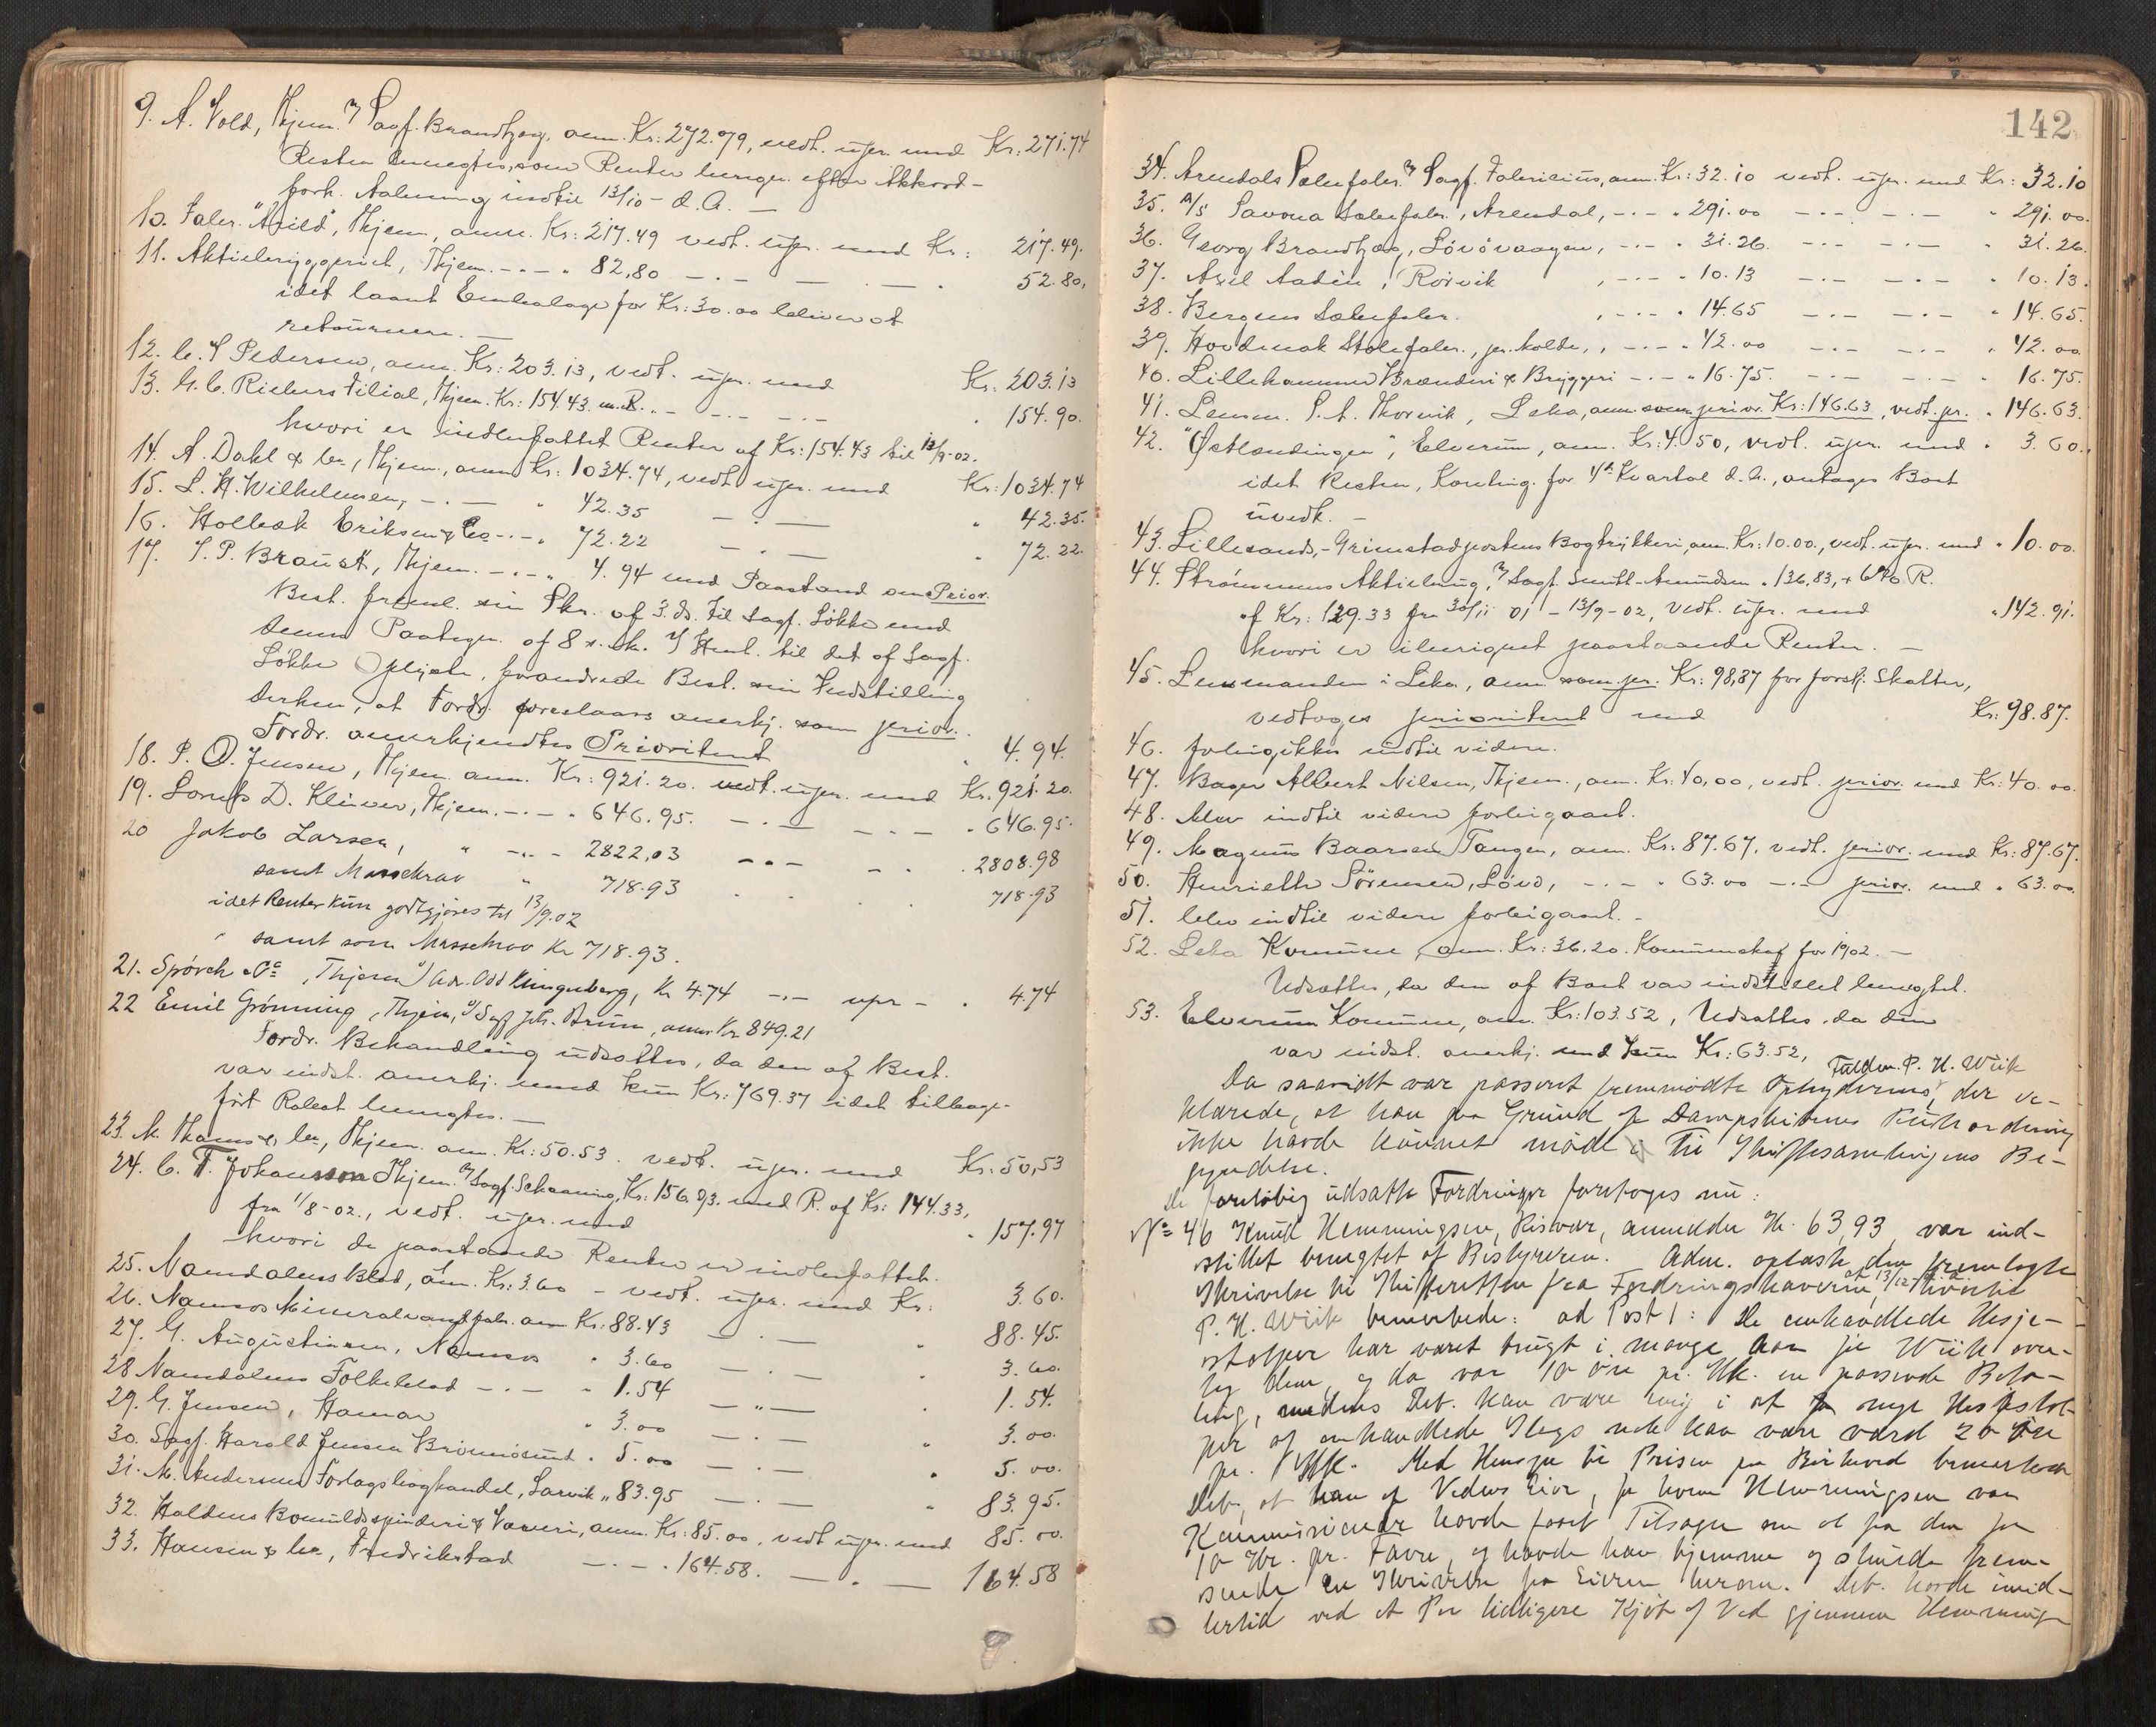 9. A. Vold, Thjem. v/ Sagf. Brandtzæg, anm. Kr: 272.79, vedt. upr. med Kr: 271.74
Resten benegtes, som Renter bereg. efter Akkord-
forh. Aabning indtil 13/10 - d. A. —
10. Fabr. "Ahild", Thjem, anm. Kr: 217.49 vedt. upr. med Kr: 217.49.
11. Aktiebryggeriet, Thjem. -.-. " 82,80 -.- — . — " 52.80,
idet laant Emballage for Kr: 30.00 bliver at
returnere. —
12. C. S Pedersen, anm. Kr: 203.13, vedt. upr. med Kr: 203.13
13. G. C. Riebers Filial, Thjem. Kr: 154.43 m. R. - -.- -.- " 154.90.
hvori er indbefattet Renter af Kr: 154.43 til 13/9-02.
14. A. Dahl & Co, Thjem., anm. Kr: 1034.74, vedt upr. med Kr: 1034.74
15. L. H. Wilhelmsen, -.- " 42.35 -.- " 42.35.
16. Holbæk Eriksen & Co -.-. " 72.22 -.- " 72.22.
17. I. P. Braust, Thjem. -.-. " 4.94 med Paastand om Prior.
Best. freml. sin Skr. af 3. ds. til Sagf. Løkke med
dennes Paategn. af 8 s. M. I Henh. til det af Sagf.
Løkke Oplyste, forandrede Best. sin Indstilling
derhen, at Fordr. foreslaaes anerkj. som prior.
Fordr. anerkjendtes Prioritent " 4.94.
18. P. O. Jensen, Thjem. anm. Kr: 921.20. vedt. upr. med Kr. 921.20.
19. Lorents D. Klüver, Thjem. -.-. " 646.95. -.- -.- " 646.95.
20 Jakob Larsen, " -.- 2822,03 -.- - . 2808.98
samt Massekrav " 718.93 . . . 718.93
idet Renter kun godtgjøres til 13/9.02
samt som Massekrav Kr 718.93.
21. Spørck & Co, Thjem v/ Adv. Odd Klingenberg, Kr 4.74 -.- upr - . 4.74
22 Emil Grønning, Thjem, v/ Sagf Joh. Bruun, anm. Kr 849.21
Fordr. Behandling udsattes, da den af Best.
var indst. anerkj. med kun Kr: 769.37 idet tilbage-
ført Rabat benegtes. —
23. M. Thams & Co, Thjem. anm. Kr: 50.53. vedt. upr. med Kr: 50,53
24. C. F. Johansson Thjem. v/ Sagf. Schaaning, Kr: 156.93. med R. af Kr: 144.33,
fra 1/8-02., vedt. upr. med " 157.97
hvori de paastaaede Renter er indbefattet.
25. Namdalens Blad, anm. Kr: 3.60 - vedt. upr. med Kr: 3.60.
26. Namsos Mineralvandfabr. anm Kr: 88.43 -.- " 88.45.
27. G. Augustinsen, Namsos " 3.60 -.- 3.60.
28 Namdalens Folkeblad -.- " 1.54 -"- . 1.54.
29. G. Jensen, Hamar " 3.00 -.- " 3.00.
30. Sagf. Harald Jensen Brønnøsund " 5.00 -.- " 5.00.
31. M. Andersens Forlagsboghandel, Larvik " 83.95 -.- " 83.95.
32. Haldens Bomuldsspinderi & Væveri, anm. Kr: 85.00. vedt upr. med 85.00.
33. Hansen & Co, Fredrikstad -.-. 164.58. -.- 164.58
142
34. Arendals Sæbefabr. v/ Sagf. Fabricius, anm. Kr: 32.10 vedt. upr. med Kr: 32.10
35. A/S Savona Sæbefabr., Arendal, -.-. " 291.00 -.- -.- " 291.00.
36. Georg Brandtzæg, Løvøvaagen, -.-. " 31.26. -.- -.- " 31.26.
37. Axel Aadin, Rørvik , -.-. " 10.13 -.- -.- " 10.13.
38. Bergens Sæbefabr. , -.-. " 14.65 -.- -.- " 14.65.
39. Hovdenak Stolefabr., pr. Molde, , -.-. " 42.00 -.- -.- " 42.00.
40. Lillehammer Brænderi & Bryggeri -.-. " 16.75. -.- -.- " 16.75.
41. Lensm. P. A. Thorvik, Leka, anm. som prior. Kr: 146.63, vedt. pr. " 146.63.
42. "Østlendingen", Elverum, anm. Kr: 4.50, vedt. upr. med " 3.60.,
idet Resten, Konting. for 4de Kvartal d. A., antages Boet
uvedk. —
43. Lillesands-Grimstadpostens Bogtrykkeri, anm. Kr: 10.00., vedt. upr. med " 10.00.
44. Strømmens Aktiebrug, v/ Sagf. Smith-Amundsen " 136,83, + 6% R.
af Kr: 129.33 fra 30/11 01 - 13/9-02, vedt. upr. med " 142.91.
hvori er iberegnet paastaaede Renter. —
45. Lensmanden i Leka, anm som pr. Kr: 98,87 for forsk. Skatter,
vedtoges prioritent med Kr: 98.87.
46. forbigikkes indtil videre.
47. Bager Albert Nilsen, Thjem., anm. Kr: 40,00, vedt. prior. med Kr: 40.00.
48. blev indtil videre forbigaaet.
49. Magnus Baarsen Tangen, anm. Kr: 87.67, vedt. prior. med Kr: 87.67.
50. Henriette Sørensen, Løvø, -.-. " 63.00 -.- prior. med " 63.00.
51. blev indtil videre forbigaaet. -
52. Leka Kommune, anm. Kr: 36.20. Kommuneskat for 1902. —
Udsattes, da den af Boet var indstillet benegtet.
53. Elverum Kommune, anm. Kr: 103.52, Udsattes, da den
var indst. anerkj. med kun Kr: 63.52,
Da saavidt var passeret fremmødte Ophyderens Fuldm. P. H. Wiik der er-
klærede, at han paa Grund af Dampskibenes
ikke havde kunnet møde til Skiftesamlingens Be-
gyndelse.
De foreløbig udsatte Fordringer foretoges nu:
No 46 Knut Hemmingsen, Risvær, anmeldte Kr. 63,93 var ind-
stillet benegtet af Bestyreren. Adm. oplæste den fremlagte
Skrivelse til Skifteretten fra Fordringshaveren, af 13/12 hvortil
P. H. Wiik bemerkede: ad Post 1: De omhandlede Hesje-
stolper har været brugt i mange Aar før Wiik over-
tog dem, og da var 10 Øre pr. Stk. en passende Beta-
ling, medens Deb. kan være enig i at nye Hesjestol-
per af omhandlede Slags nok kan være værd 20 Øre
pr. Stk. Med Hensyn til Prisen paa Birkeved bemerkede
Deb., at han af Vedens Eier, for hvem Hemmingsen var
Kommisionær havde faaet Tilsagn om at faa den for
10 Kr. pr. Favn, og havde han hjemme og skulde frem-
sende en Skrivelse fra Eieren herom. Deb. havde imid-
lertid ved et Par tidligere Kjøb af Ved gjennem Hemmingsen